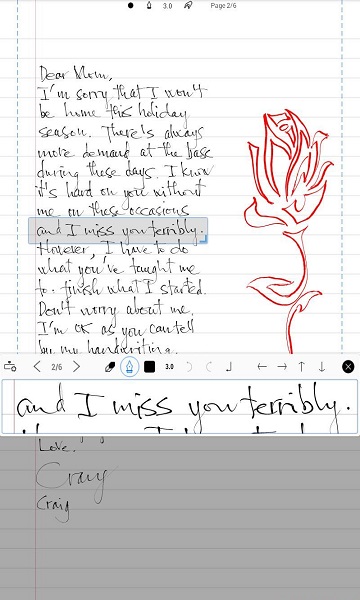 3.0
Page 2/6
Dear Mom,
I'm sorry that I won't
be home this holiday
season. There's always
more demand at the base
during these days. I know
it's hard on you without
me on these occasions
and I miss you terribly.
However, I have to do
what you've taught me
to - finish what I started.
Don't worry about me.
I'm OK as you can tell
by my handwriting.
2/6
3.0
and I miss you terribly.
Love.
Craig
Craig